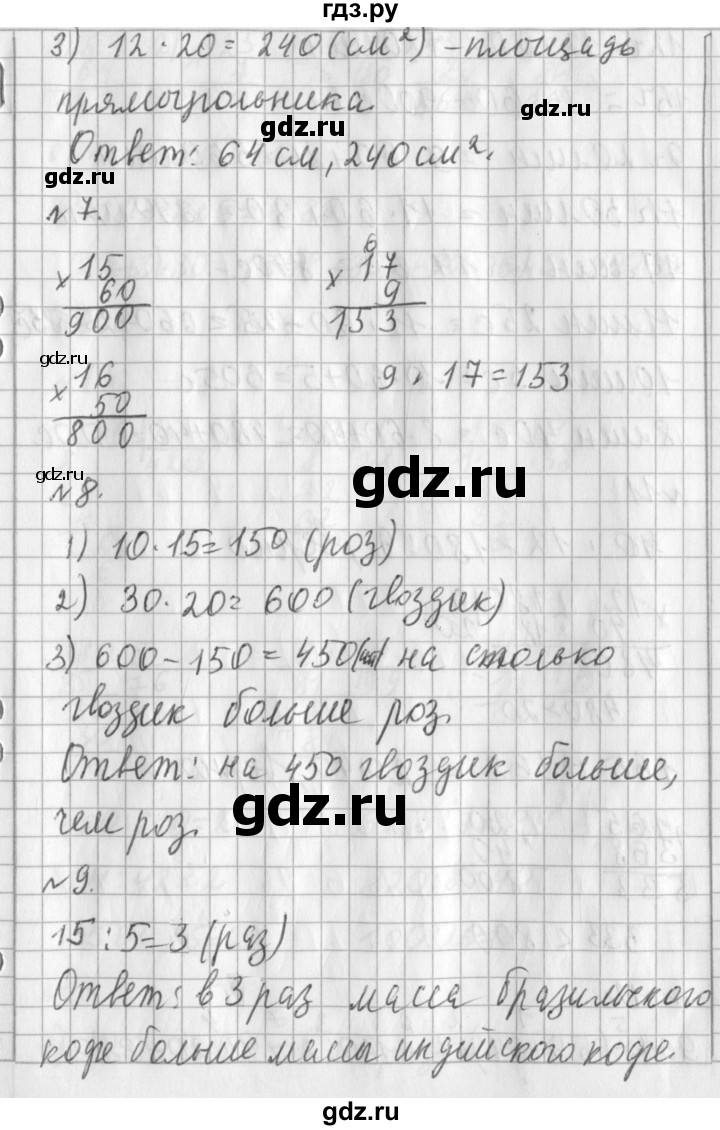 гдз.ру
3) 12 · 20 = 240 (см²) – площадь
прямоугольника.
gdz.ru
gdz.ru
Ответ: 64 см, 240 см².
gdz.ru
№ 7.
× 15
60
900
6
× 17
9
153
gdz.ru
× 16
50
800
9 · 17 = 153
gdz.ru
gdz.ru
№ 8.
1) 10 · 15 = 150 (роз)
2) 30 · 20 = 600 (гвоздик)
3) 600 – 150 = 450 на столько
гвоздик больше роз.
Ответ: на 450 гвоздик больше,
gdz.ru
чем роз.
№ 9.
15 : 5 = 3 (раз)
Ответ: в 3 раз масса бразильского
кофе больше массы индийского кофе.
gdz.ru